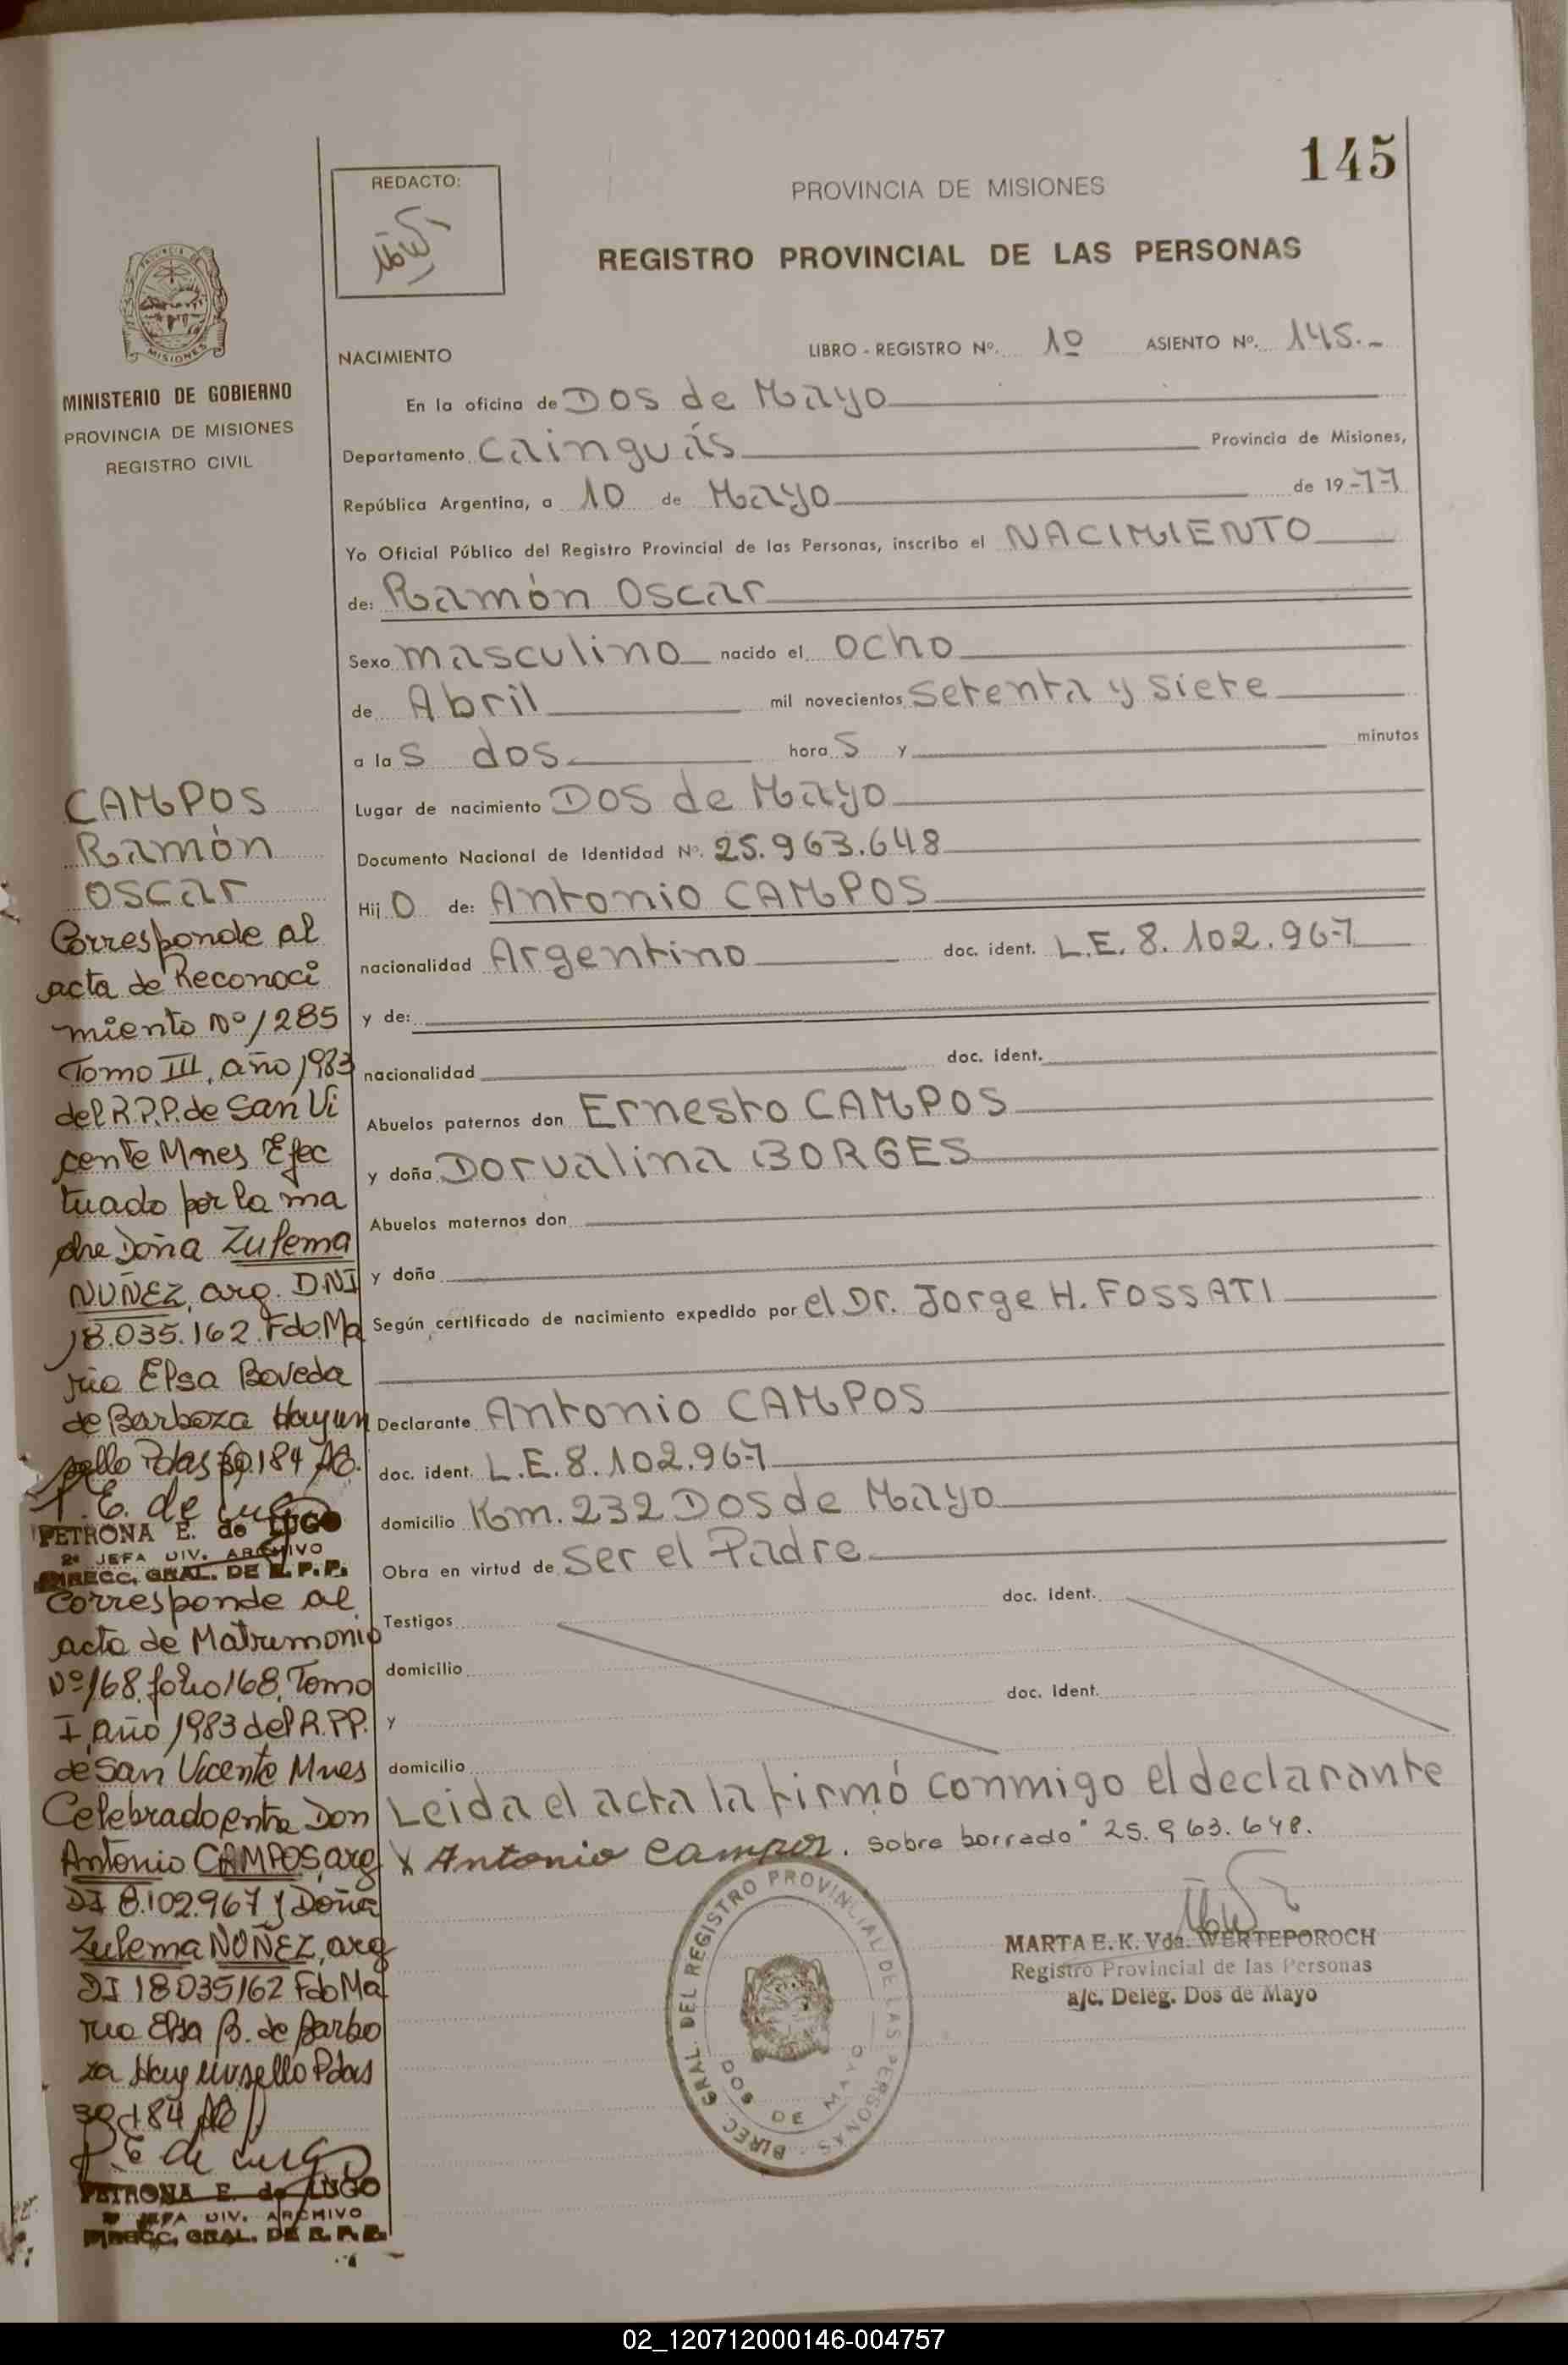 145
REDACTO:
PROVINCIA DE MISIONES
REGISTRO PROVINCIAL DE LAS PERSONAS
PROVINCIA DE
MISIONES
MINISTERIO DE GOBIERNO
PROVINCIA DE MISIONES
REGISTRO CIVIL
NACIMIENTO LIBRO - REGISTRO Nº. 1º ASIENTO Nº. 145.-
En la oficina de Dos de Mayo
Departamento Cainguás Provincia de Misiones,
República Argentina, a 10 de Mayo de 19-77
Yo Oficial Público del Registro Provincial de las Personas, inscribo el NACIMIENTO
de: Ramón Oscar
Sexo masculino nacido el ocho
de Abril mil novecientos setenta y siete
a las dos horas y minutos
Lugar de nacimiento Dos de Mayo
Documento Nacional de Identidad Nº. 25.963.648
Hijo de: Antonio CAMPOS
nacionalidad Argentino doc. ident. L.E. 8.102.967
y de:
nacionalidad doc. ident.
Abuelos paternos don Ernesto CAMPOS
y doña Dorvalina BORGES
Abuelos maternos don
y doña
Según certificado de nacimiento expedido por el Dr. Jorge H. FOSSATI
Declarante Antonio CAMPOS
doc. ident. L.E. 8.102.967
domicilio Km. 232 Dos de Mayo
Obra en virtud de ser el Padre
Testigos doc. ident.
domicilio
y doc. ident.
domicilio
Leida el acta la firmó conmigo el declarante
x Antonio Campos. Sobre borrado" 25.963.648.
MARTA E. K. Vda. WERTEPOROCH
Registro Provincial de las Personas
a/c. Deleg. Dos de Mayo
DIREC. GRAL. DEL REGISTRO PROVINCIAL DE LAS PERSONAS
DOS DE MAYO
CAMPOS
Ramón
Oscar
Corresponde al
acta de Reconoci
miento Nº 1285
Tomo III, año 1983
del R.P.P. de San Vi
cente Mnes Efec
tuado por la ma
dre Doña Zulema
NUÑEZ, arg. DNI
18.035.162. Fdo Ma
ria Elsa Boveda
de Barboza Hay un
sello Pdas
P. E. de Lugo
PETRONA E. de LUGO
2ª JEFA DIV. ARCHIVO
DIRECC. GRAL. DE R. P. P.
Corresponde al
acta de Matrimonio
Nº 168, folio 168, Tomo
I, año 1983 del R.PP.
de San Vicente Mnes
Celebrado entre Don
Antonio CAMPOS, arg
DI 8.102.967 y Doña
Zulema NUÑEZ, arg
DI 18035162 Fdo Ma
ria Elsa B. de Barbo
za Hay un sello Pdas
P. E. de Lugo
PETRONA E. de LUGO
2ª JEFA DIV. ARCHIVO
DIRECC. GRAL. DE R. P. P.
02_120712000146-004757